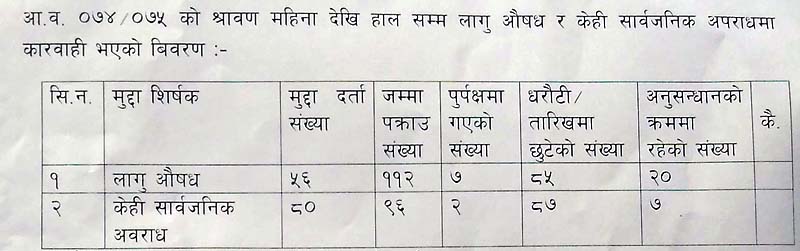 आ.व. ०७४/०७५ को श्रावण महिना देखि हाल सम्म लागु औषध र केही सार्वजनिक अपराधमा
कारवाही भएको बिवरण :-
सि.न. मुद्दा शिर्षक मुद्दा दर्ता संख्या जम्मा पक्राउ संख्या पुर्पक्षमा गएको संख्या धरौटी/ तारिखमा छुटेको संख्या अनुसन्धानको क्रममा रहेको संख्या कै.
१ लागु औषध ५६ ११२ ७ ८५ २०
२ केही सार्वजनिक अवराध ८० ९६ २ ८७ ७